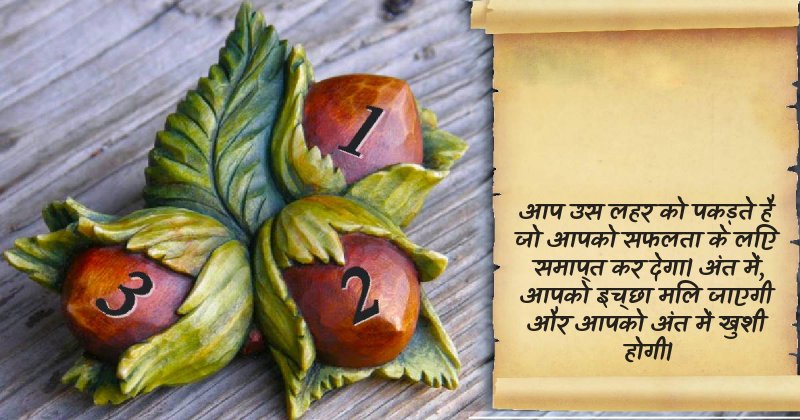 1
3
2
आप उस लहर को पकड़ते है
जो आपको सफलता के लिए
समाप्त कर देगा। अंत में,
आपको इच्छा मलि जाएगी
और आपको अंत में खुशी
होगी।